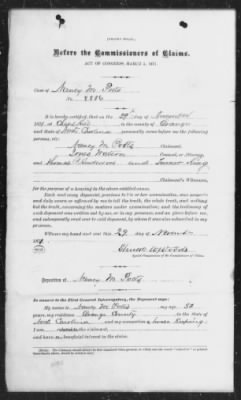 Before the Commissioners of Claims.
ACT OF CONGRESS, MARCH 3, 1871.
Case of Nancy M. Potts
No.
It is hereby certified, that on the 29th day of November
187, at Chapel Hill in the county of Orange
and State of North Carolina personally came before me the following
persons, viz:
Nancy M. Potts Claimant,
Jones Watson Counsel, or Attorney,
and
Claimant's Witnesses,
for the purpose of a hearing in the above entitled cause.
Each and every deponent, previous to his or her examination, was properly
and duly sworn or affirmed by me to tell the truth, the whole truth, and nothing
but the truth, concerning the matters under examination; and the testimony of
each deponent was written out by me, or in my presence, and as given before me,
and subsequently read over to said deponent, by whom it was also subscribed in my
presence.
Witness my hand and seal this 29 day of November
187
Special Commissioner of the Commissioners of Claims.
Deposition of Nancy M. Potts
In answer to the First General Interrogatory, the Deponent says:
My name is Nancy M. Potts my age 50
years, my residence Orange County in the State of
North Carolina and my occupation a House Keeping
I am the claimant,
and have a beneficial interest in the claim.